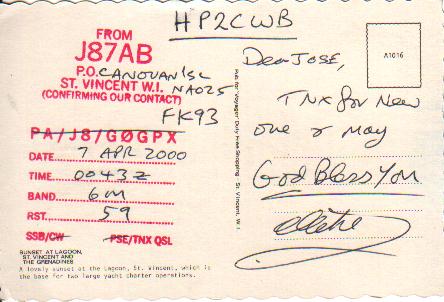 HP2CWB
FROM
J87AB
P.O. CANOUAN ISL
ST. VINCENT W.I. NA025
(CONFIRMING OUR CONTACT)
FK93
PA/J8/GØGPX
DATE 7 APR 2000
TIME 0043z
BAND 6m
RST 59
SSB/CW PSE/TNX QSL
SUNSET AT LAGOON,
ST. VINCENT AND
THE GRENADINES
A lovely sunset at the Lagoon, St. Vincent, which is
the base for two large yacht charter operations.
Pub. for 'Voyager' Duty Free Shopping, St. Vincent, W.I.
A1016
Dear JOSE,
TNX for New
one & May
God Bless You